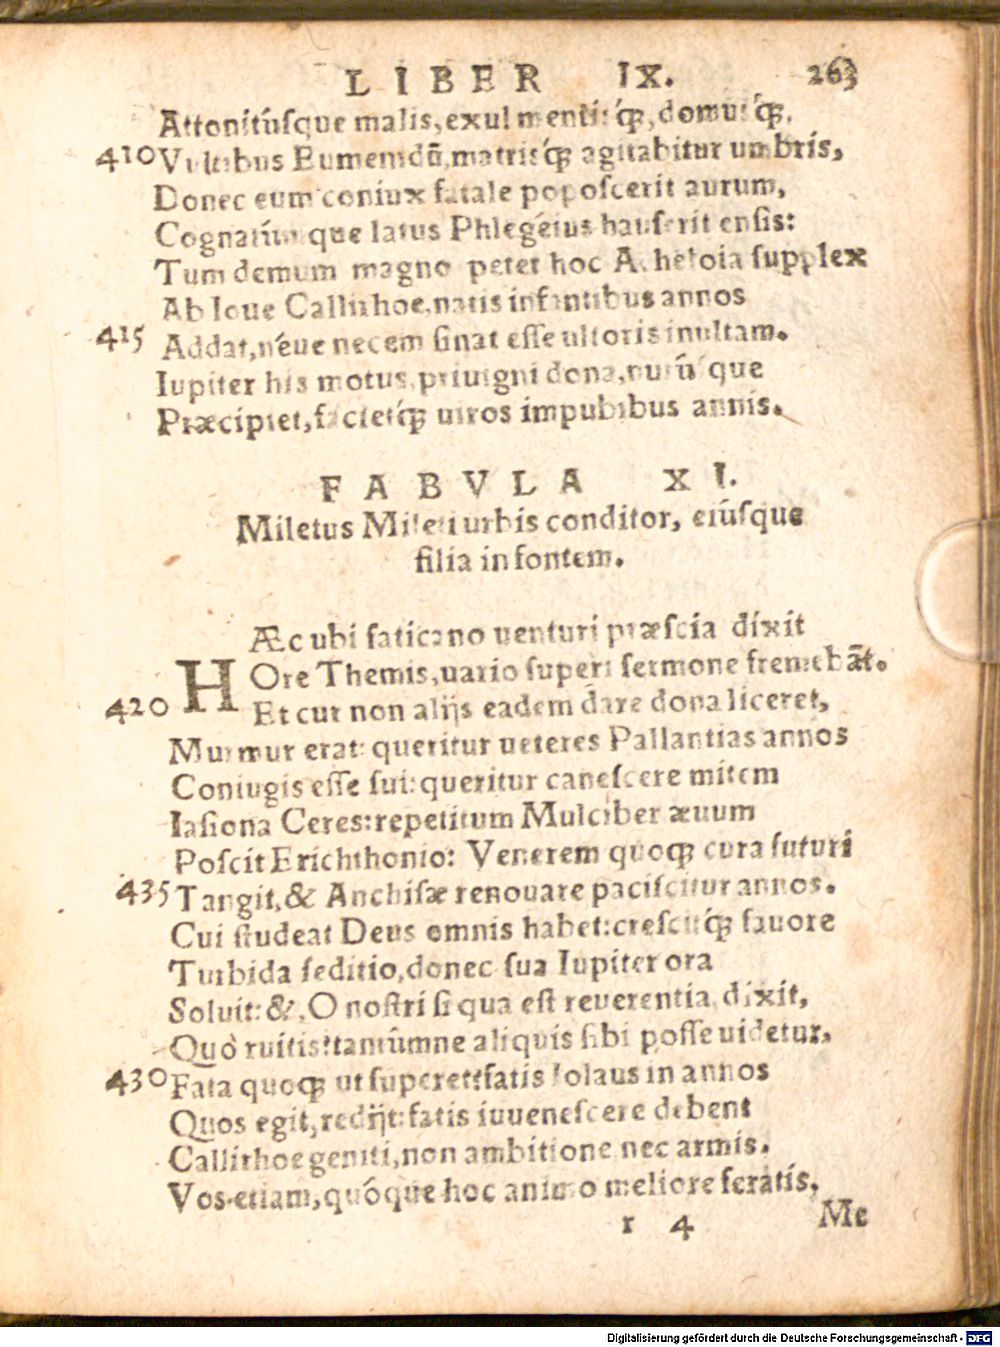 LIBER IX. 263
Attonitúsque malis, exul mentisq́ꝫ, domusq́ꝫ,
410 Vultibus Eumenidũ, matrisq́ꝫ agitabitur umbris,
Donec eum coniux fatale poposcerit aurum,
Cognatúmque latus Phlegéius hauserit ensis:
Tum demum magno petet hoc Acheloia supplex
Ab Ioue Callirhoe, natis infantibus annos
415 Addat, néue necem sinat esse ultoris inultam.
Iupiter his motus, priuigni dona, nurúsque
Præcipiet, facietq́ꝫ uiros impubibus annis.
FABVLA XI.
Miletus Mileti urbis conditor, eiúsque
filia in fontem.
HÆc ubi faticano uenturi præscia dixit
Ore Themis, uario superi sermone fremebãt.
420 Et cur non alijs eadem dare dona liceret,
Murmur erat: queritur ueteres Pallantias annos
Coniugis esse sui: queritur canescere mitem
Iasiona Ceres: repetitum Mulciber æuum
Poscit Erichthonio: Venerem quoqꝫ cura futuri
435 Tangit, & Anchisæ renouare paciscitur annos.
Cui studeat Deus omnis habet: crescitq́ꝫ fauore
Turbida seditio, donec sua Iupiter ora
Soluit: &, O nostri si qua est reuerentia, dixit,
Quò ruitis? tantúmne aliquis sibi posse uidetur,
430 Fata quoqꝫ ut superet? fatis Iolaus in annos
Quos egit, redijt: fatis iuuenescere debent
Callirhoe geniti, non ambitione nec armis.
Vos etiam, quóque hoc animo meliore feratis,
r 4 Me
Digitalisierung gefördert durch die Deutsche Forschungsgemeinschaft - DFG